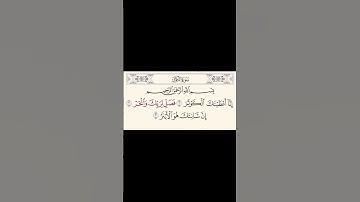 سورة الكوثر
بِسْمِ اللَّهِ الرَّحْمَٰنِ الرَّحِيمِ
إِنَّا أَعْطَيْنَاكَ الْكَوْثَرَ ١ فَصَلِّ لِرَبِّكَ وَانْحَرْ ٢
إِنَّ شَانِئَكَ هُوَ الْأَبْتَرُ ٣